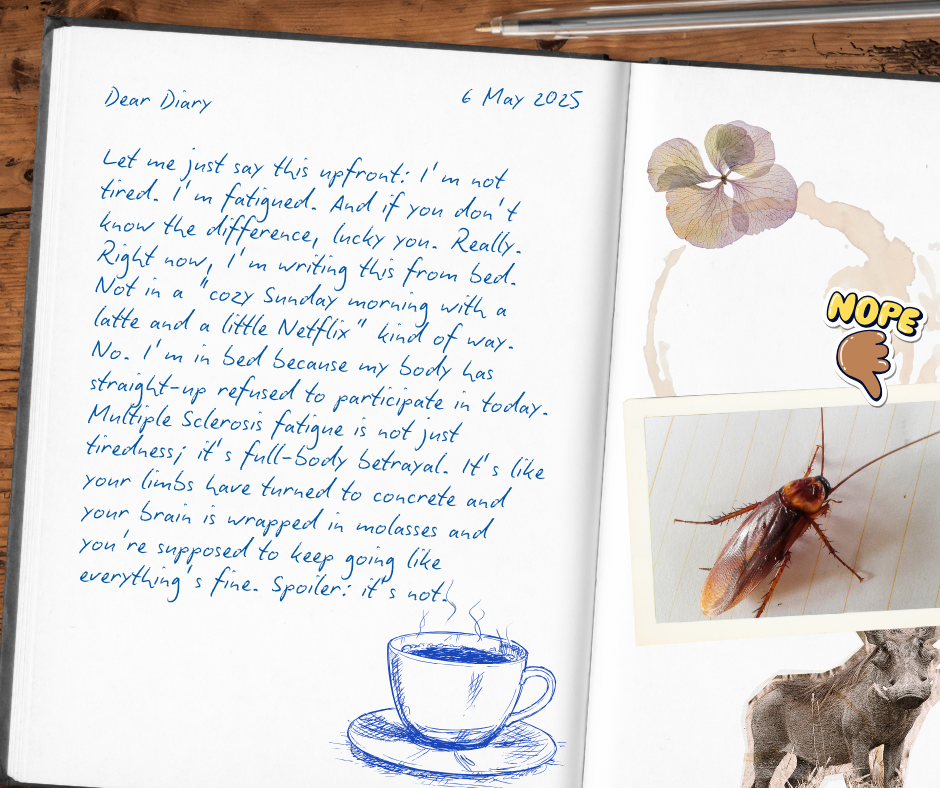 Dear Diary
6 May 2025
Let me just say this upfront: I'm not
tired. I'm fatigued. And if you don't
know the difference, lucky you. Really.
Right now, I'm writing this from bed.
Not in a "cozy Sunday morning with a
latte and a little Netflix" kind of way.
No. I'm in bed because my body has
straight-up refused to participate in today.
Multiple Sclerosis fatigue is not just
tiredness; it's full-body betrayal. It's like
your limbs have turned to concrete and
your brain is wrapped in molasses and
you're supposed to keep going like
everything's fine. Spoiler: it's not.
NOPE